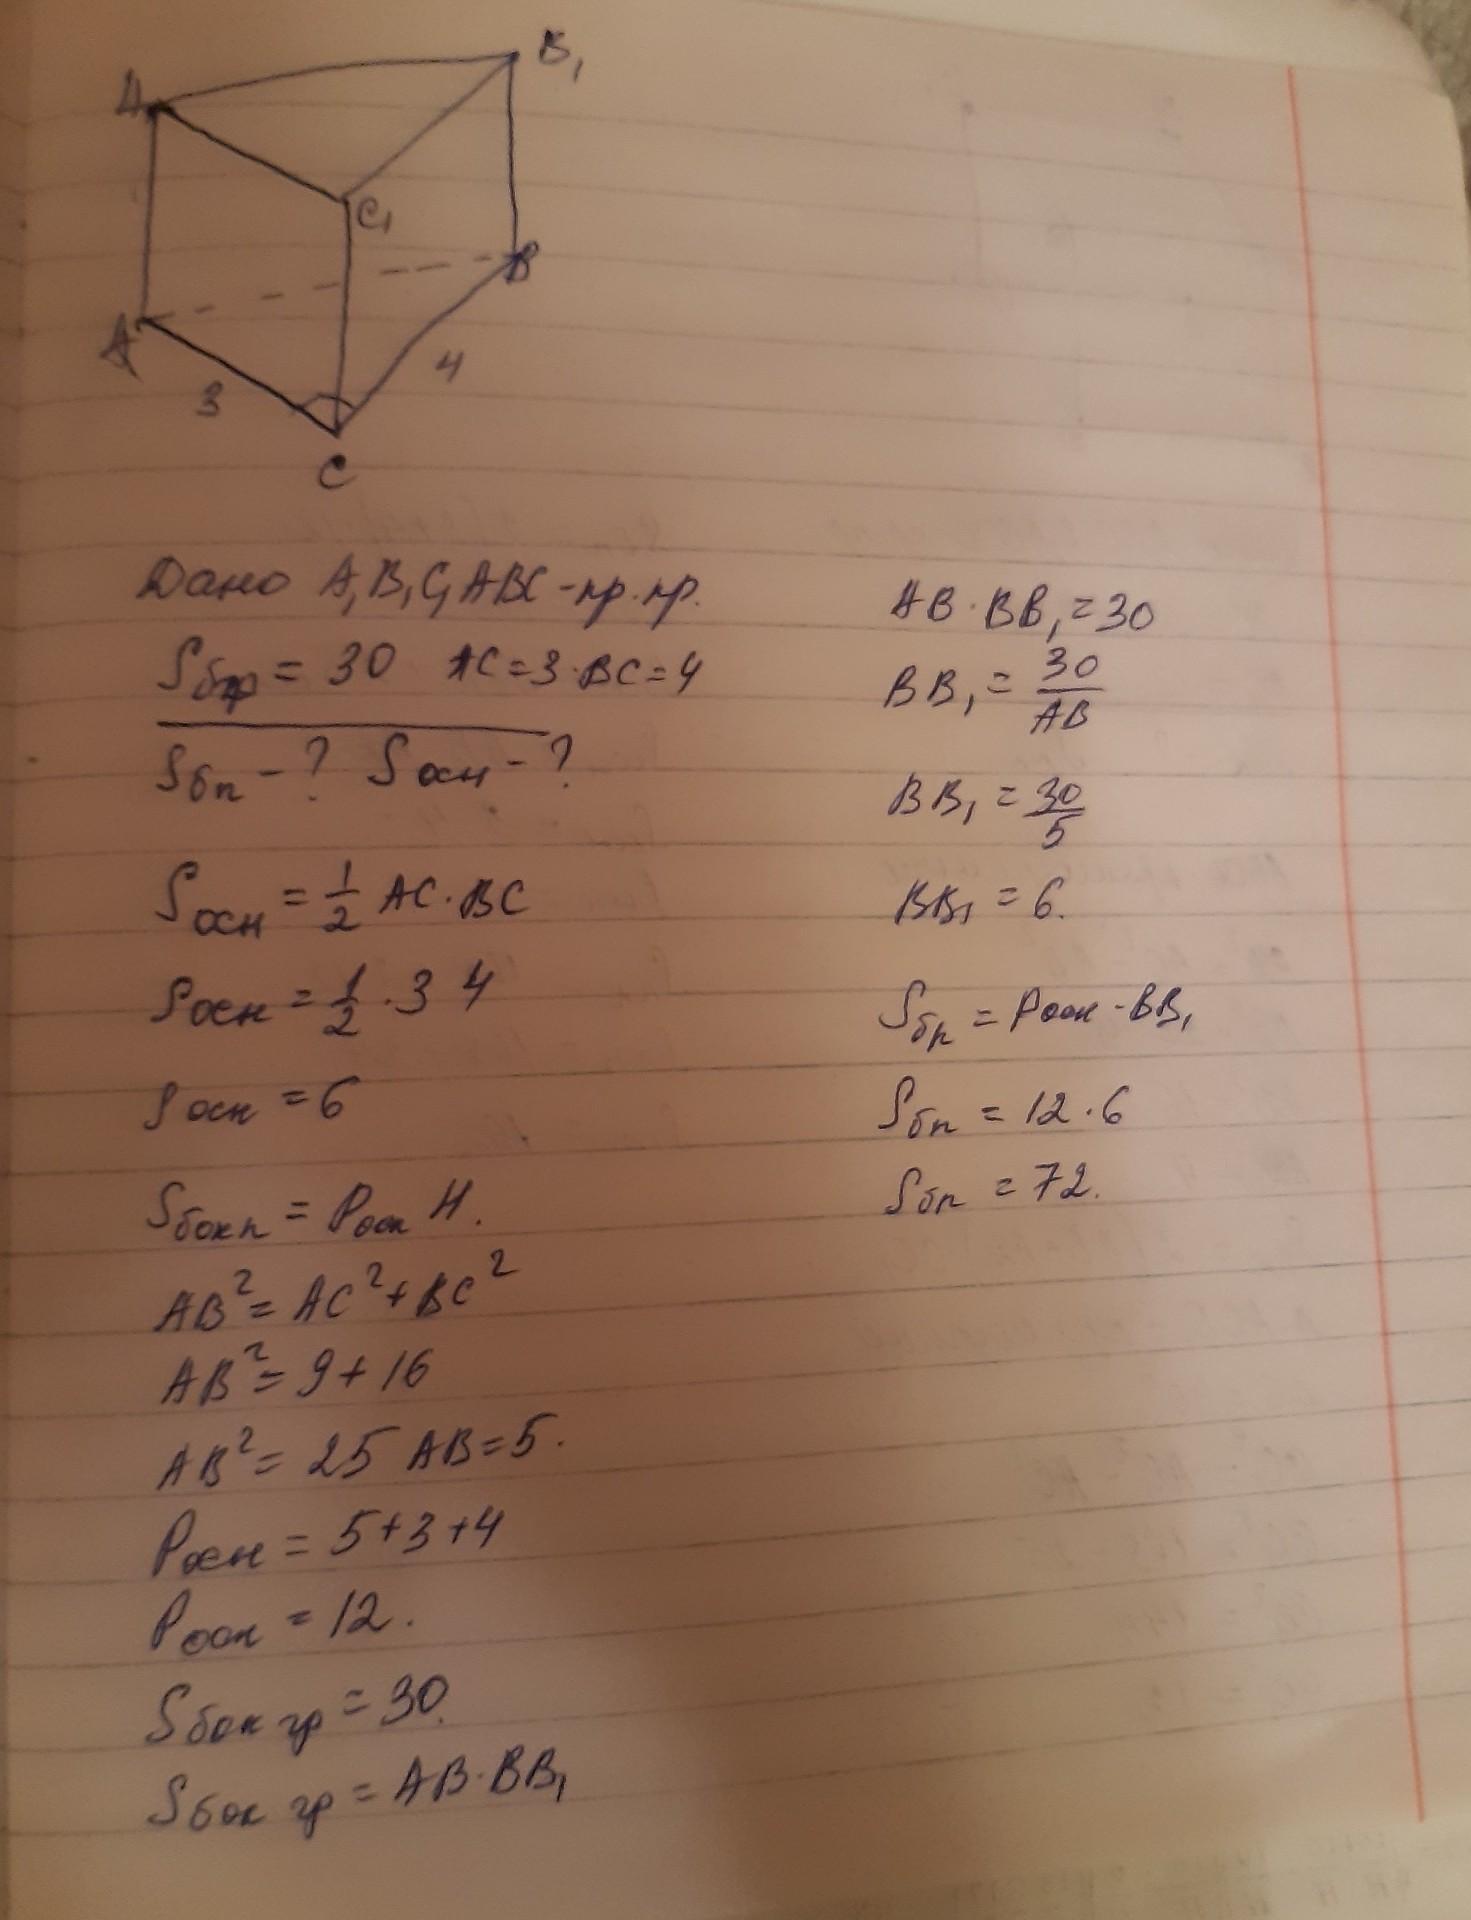 B₁
A
C₁
B
A
3
4
C
Дано A₁B₁C₁ABC - пр. пр.
Sбгр = 30 AC = 3. BC = 4
Sбп - ? Sосн - ?
Sосн = 1/2 AC · BC
Sосн = 1/2 · 3 4
Sосн = 6
Sбок п = Pосн H.
AB² = AC² + BC²
AB² = 9 + 16
AB² = 25 AB = 5.
Pосн = 5 + 3 + 4
Pосн = 12.
Sбок гр = 30.
Sбок гр = AB · BB₁
AB · BB₁ = 30
BB₁ = 30/AB
BB₁ = 30/5
BB₁ = 6.
Sбп = Pосн · BB₁
Sбп = 12 · 6
Sбп = 72.